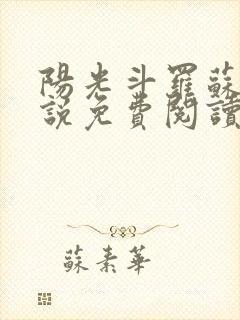 陽光斗羅蘇
說免費閱讀
蘇素華